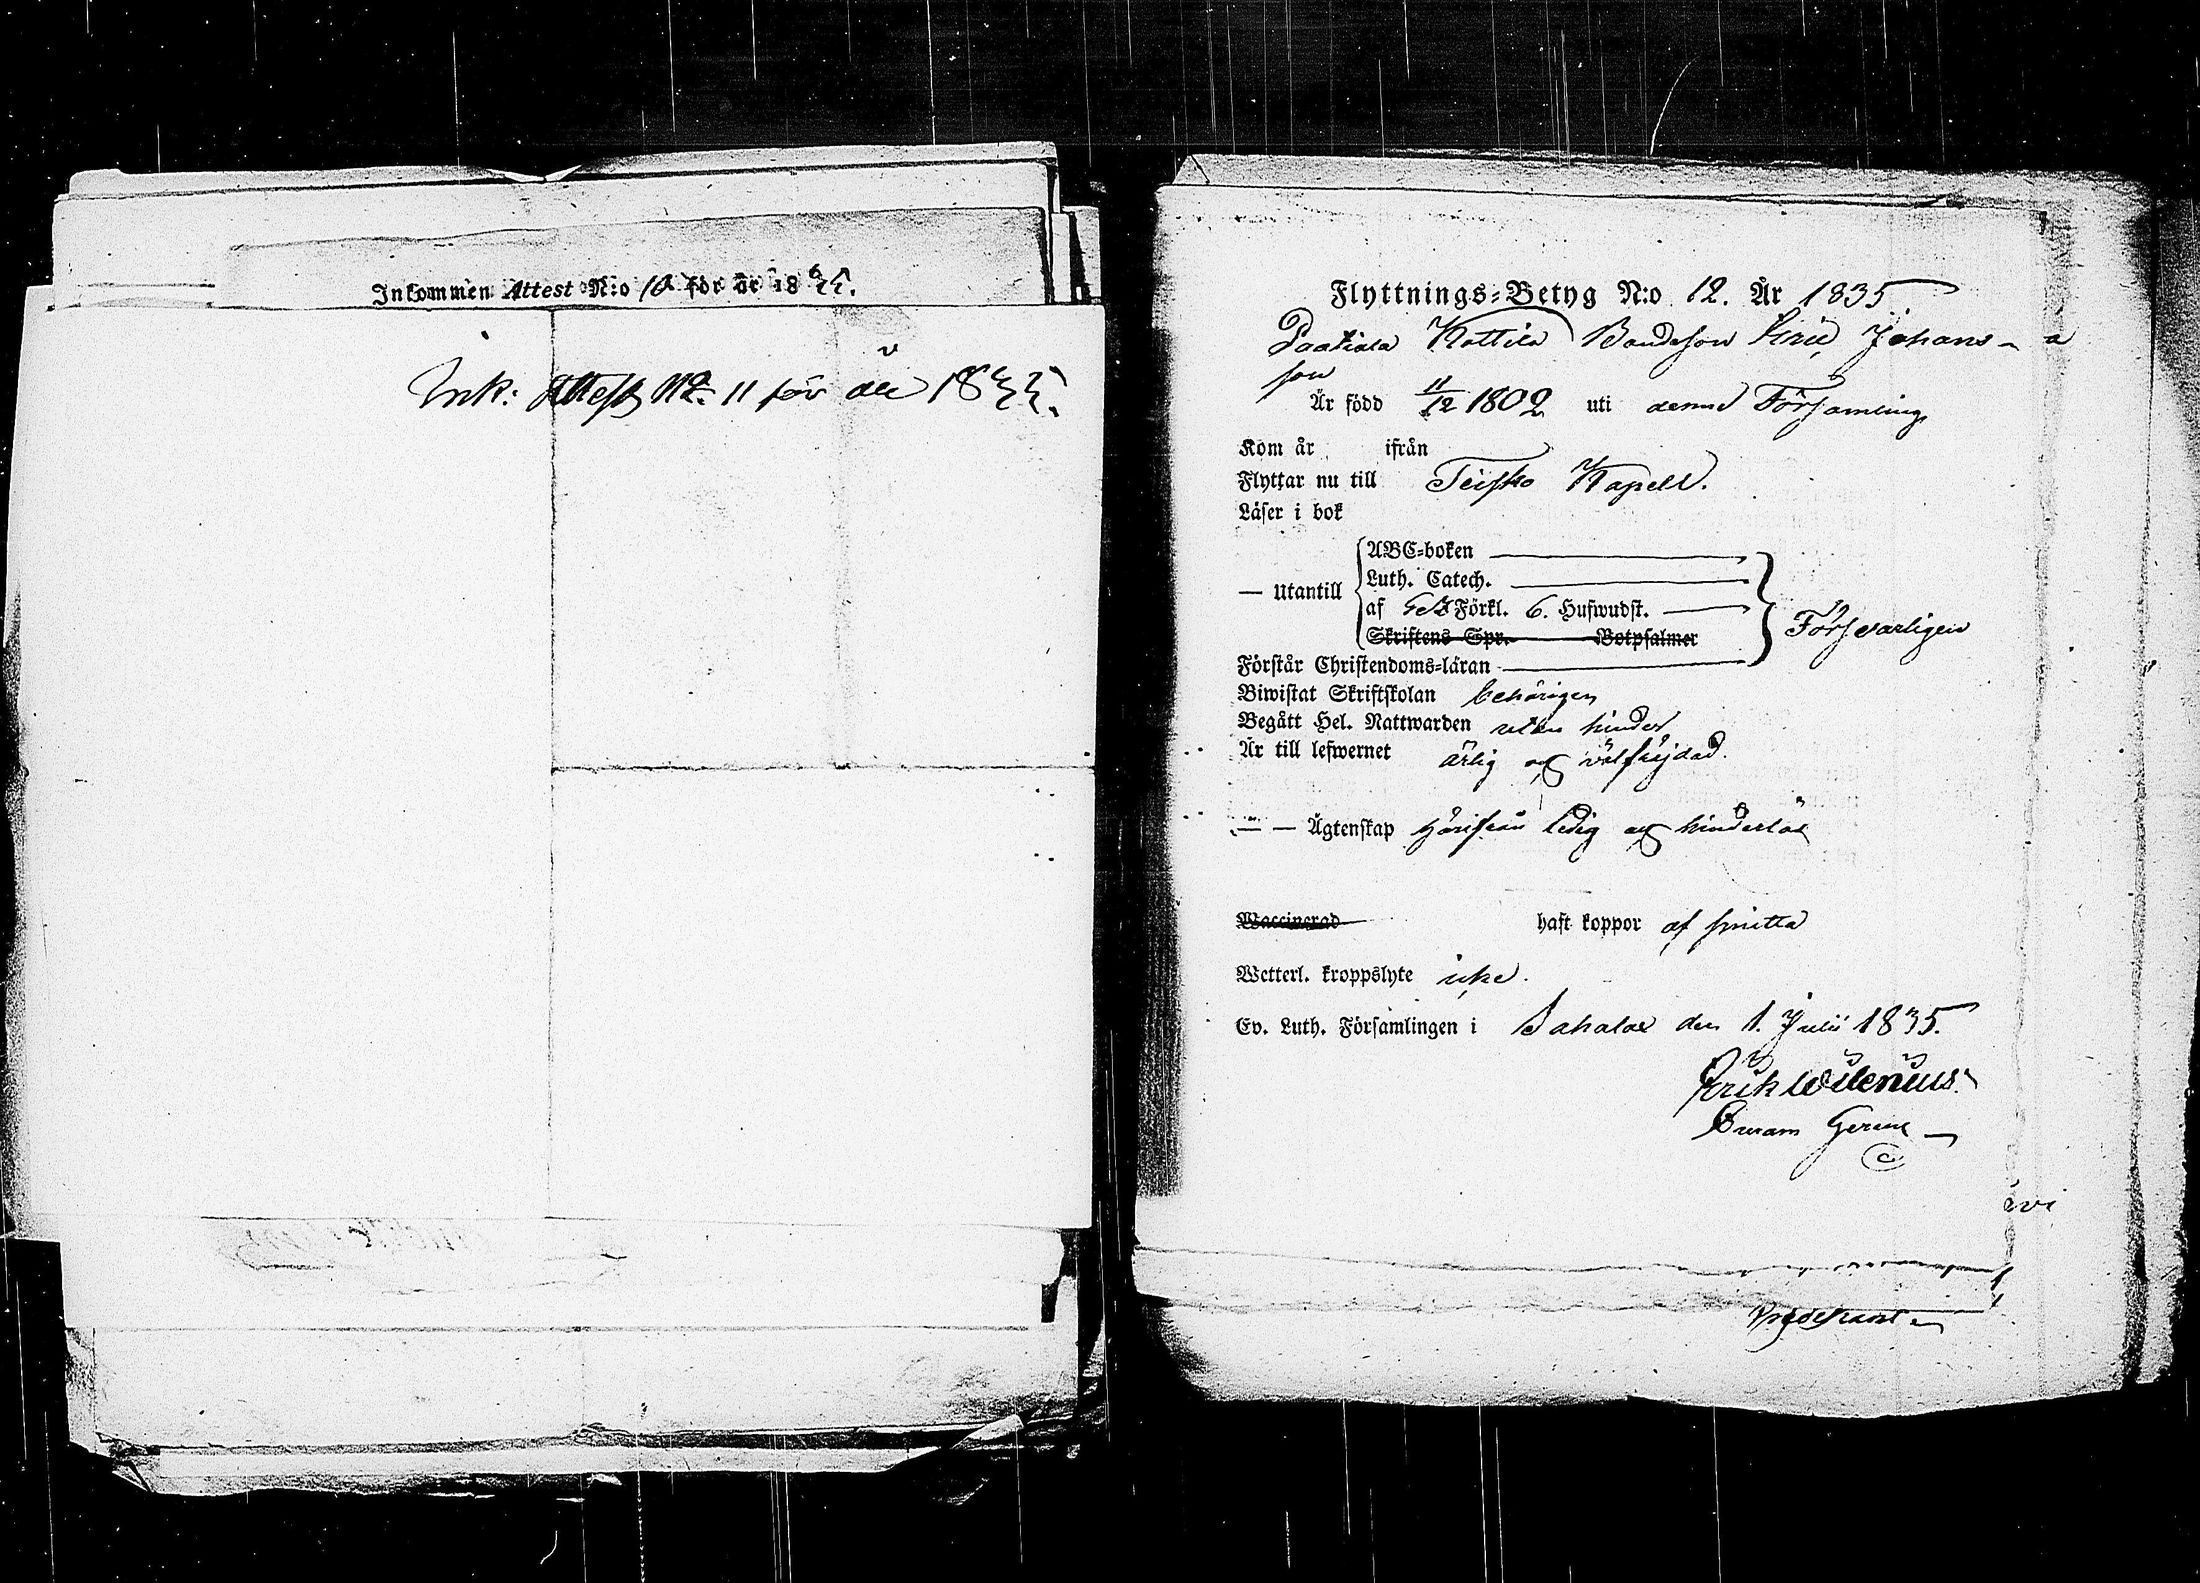 Inkommen Attest N:o 10 för år 1835.
Ink: Attest No 11 för år 1835.
Flyttnings-Betyg N:o 12. År 1835
Kottila Bondeson Johans-
son
Är född 11/12 1802 uti denna Församling
Kom år ifrån
Flyttar nu till Teisko Kapell.
Läser i bok
— Utantill
ABC-boken
Luth. Catech.
af Förkl. 6. Hufwudst.
Skriftens Spr. Botpsalmer
Försvarligen
Förstår Christendoms-läran
Biwistat Skriftskolan behörigen
Begått Hel. Nattwarden utan hinder
Är till lefwernet ärlig och välfräjdad.
— — Ägtenskap härifrån ledig och hinderlös
Waccinerad haft koppor af smitta
Wetterl. kroppslyte icke.
Ev. Luth. Församlingen i Sahalax den 1. Julii 1835.
Erik Wilenius